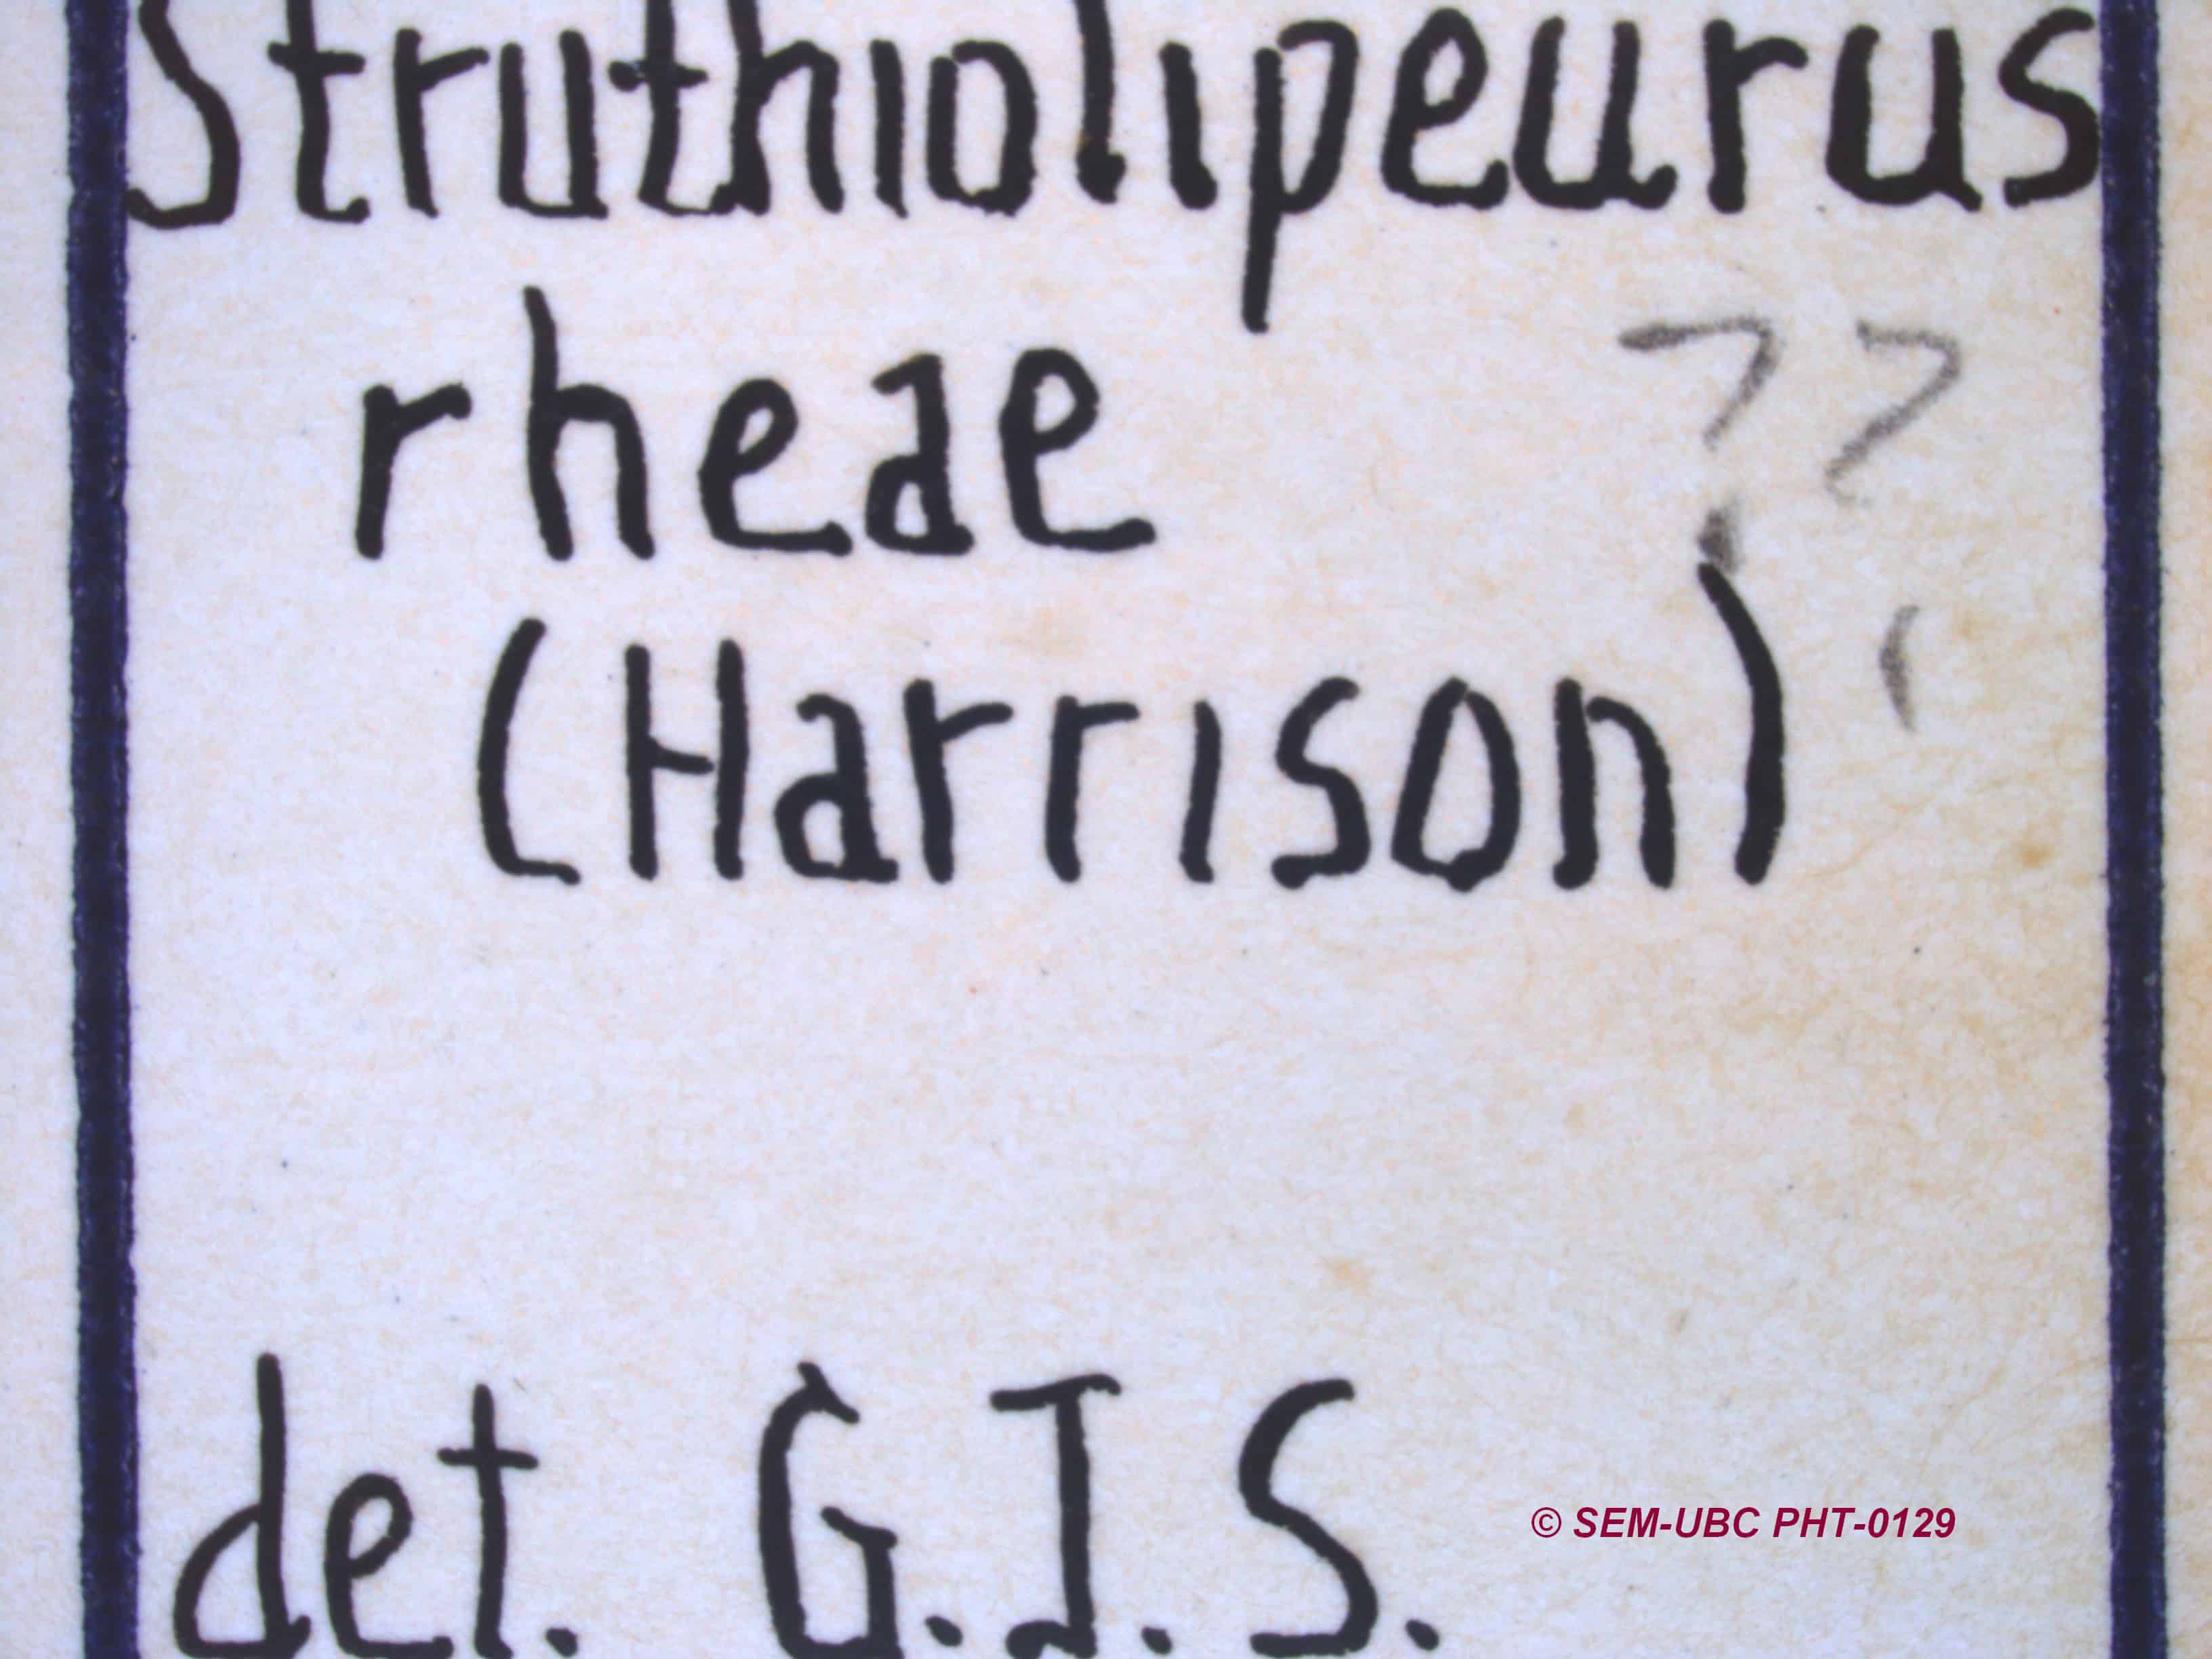 Struthiolipeurus
rheae ??
(Harrison)
det. G.J.S.
© SEM-UBC PHT-0129